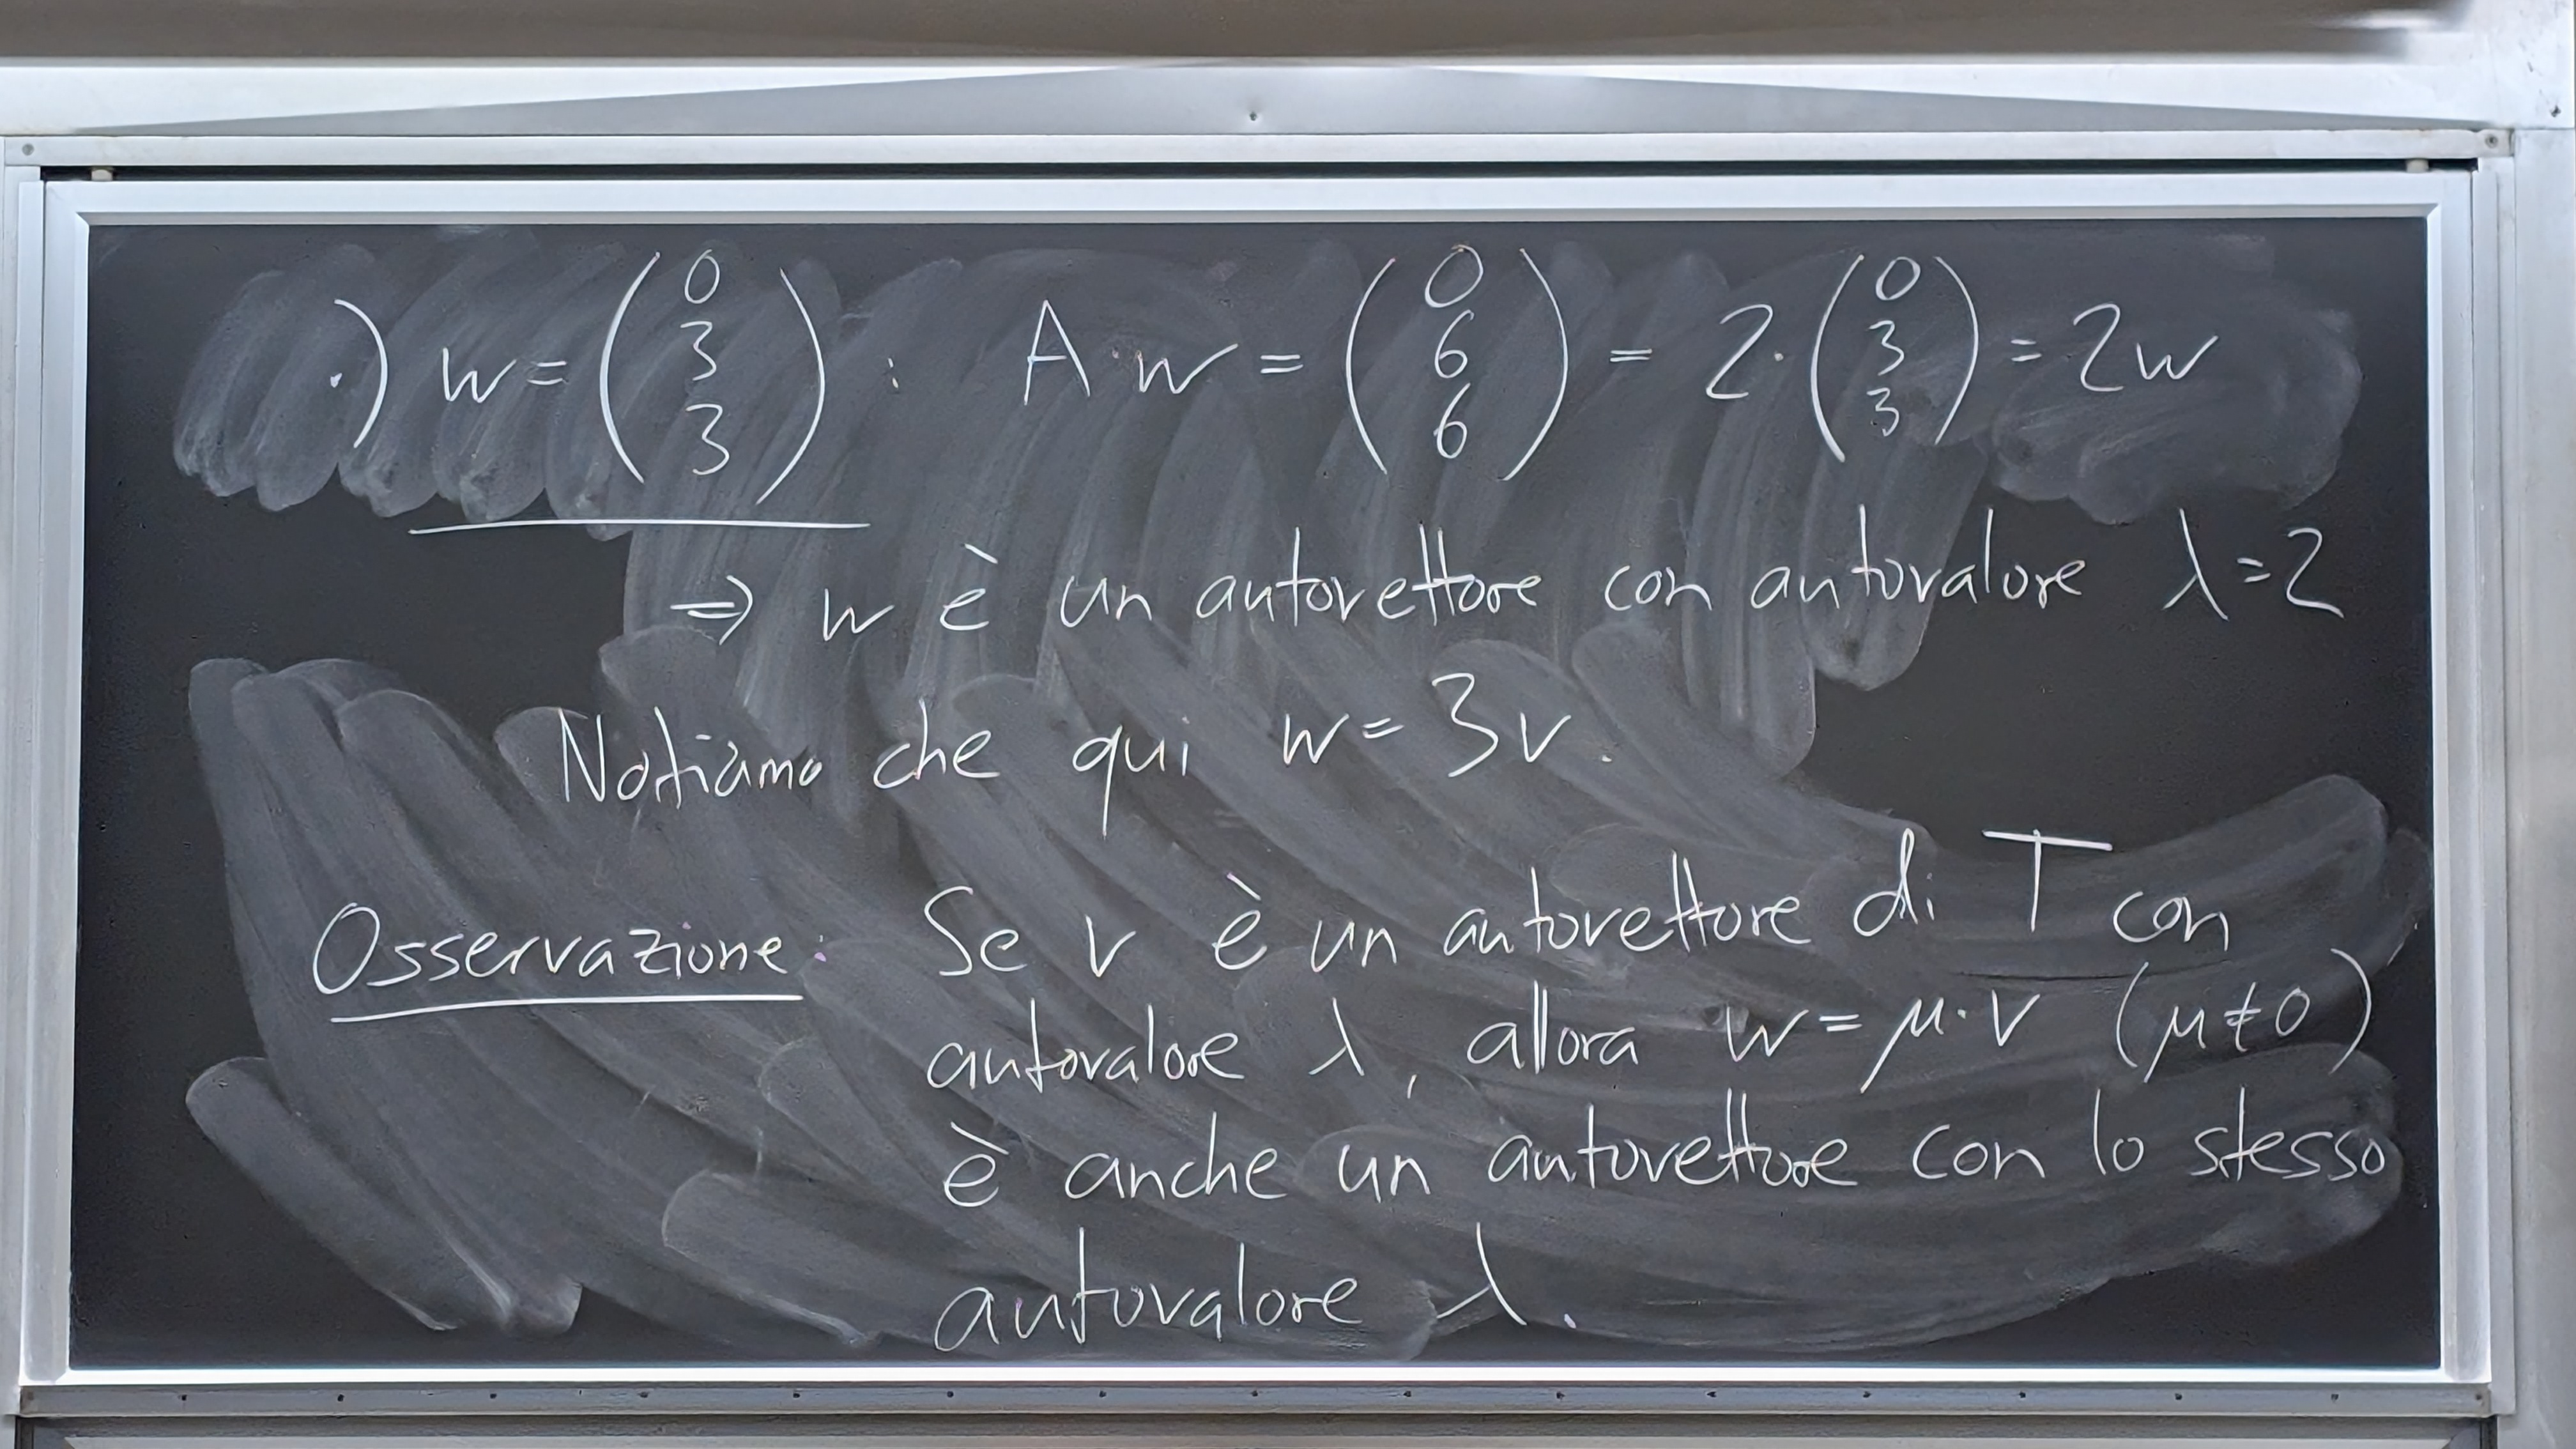 ·) w = (0 3 3) : A·w = (0 6 6) = 2·(0 3 3) = 2w
⇒ w è un autovettore con autovalore λ=2
Notiamo che qui w = 3v.
Osservazione: Se v è un autovettore di T con
autovalore λ, allora w = μ·v (μ≠0)
è anche un autovettore con lo stesso
autovalore λ.